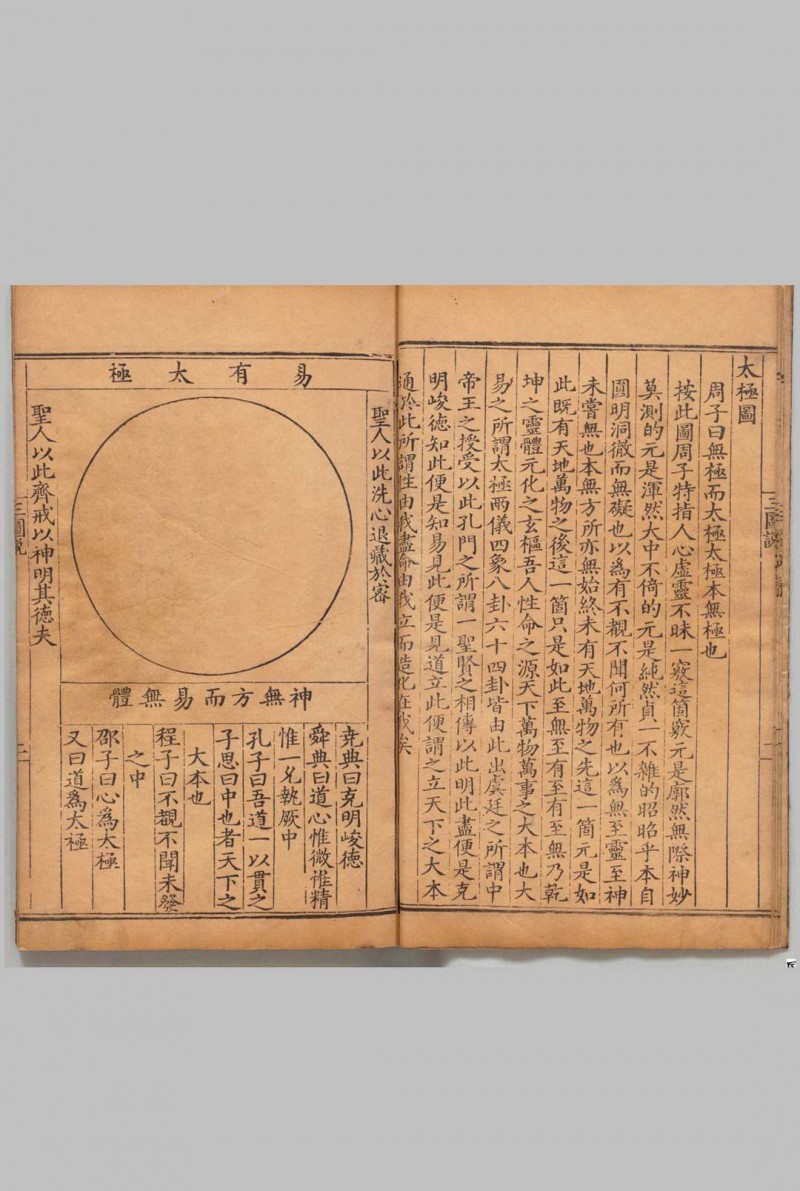 太極圖
周子曰無極而太極太極本無極也
按此圖周子特指人心虛靈不昧一竅這箇竅元是廓然無際神妙
莫測的元是渾然大中不倚的元是純然貞一不雜的昭昭乎本自
圓明洞徹而無礙也以為有不覩不聞何所有也以為無至靈至神
未嘗無也本無方所亦無始終未有天地萬物之先這一箇元是如
此既有天地萬物之後這一箇只是如此至無至有至有至無乃乾
坤之靈體元化之玄樞吾人性命之源天下萬物萬事之大本也大
易之所謂太極兩儀四象八卦六十四卦皆由此出虞廷之所謂中
帝王之授受以此孔門之所謂一聖賢之相傳以此明此盡便是克
明峻德知此便是知易見此便是見道立此便謂之立天下之大本
通於此所謂性由我盡命由我立而造化在我矣
三圖說
易有太極
聖人以此洗心退藏於密
聖人以此齊戒以神明其德夫
神無方而易無體
堯典曰克明峻德
舜典曰道心惟微惟精
惟一允執厥中
孔子曰吾道一以貫之
子思曰中也者天下之
大本也
程子曰不覩不聞未發
之中
邵子曰心為太極
又曰道為太極
三圖說
二